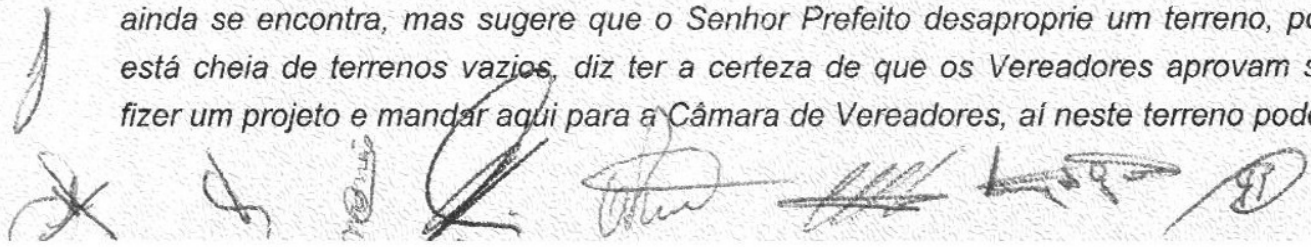 ainda se encontra, mas sugere que o Senhor Prefeito desaproprie um terreno,
está cheia de terrenos vazios, diz ter a certeza de que os Vereadores aprovam
fizer um projeto e mandar aqui para a Câmara de Vereadores, aí neste terreno